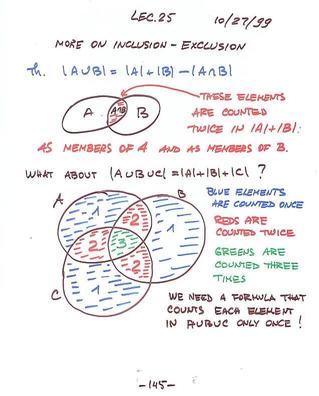 LEC. 25 10/27/99
MORE ON INCLUSION - EXCLUSION
Th. |A∪B| = |A|+|B| - |A∩B|
A A∩B B
THESE ELEMENTS
ARE COUNTED
TWICE IN |A|+|B|:
AS MEMBERS OF A AND AS MEMBERS OF B.
WHAT ABOUT |A∪B∪C| = |A|+|B|+|C| ?
A B
1 2 1
2 3 2
C 1
BLUE ELEMENTS
ARE COUNTED ONCE
REDS ARE
COUNTED TWICE
GREENS ARE
COUNTED THREE
TIMES
WE NEED A FORMULA THAT
COUNTS EACH ELEMENT
IN A∪B∪C ONLY ONCE !
-145-